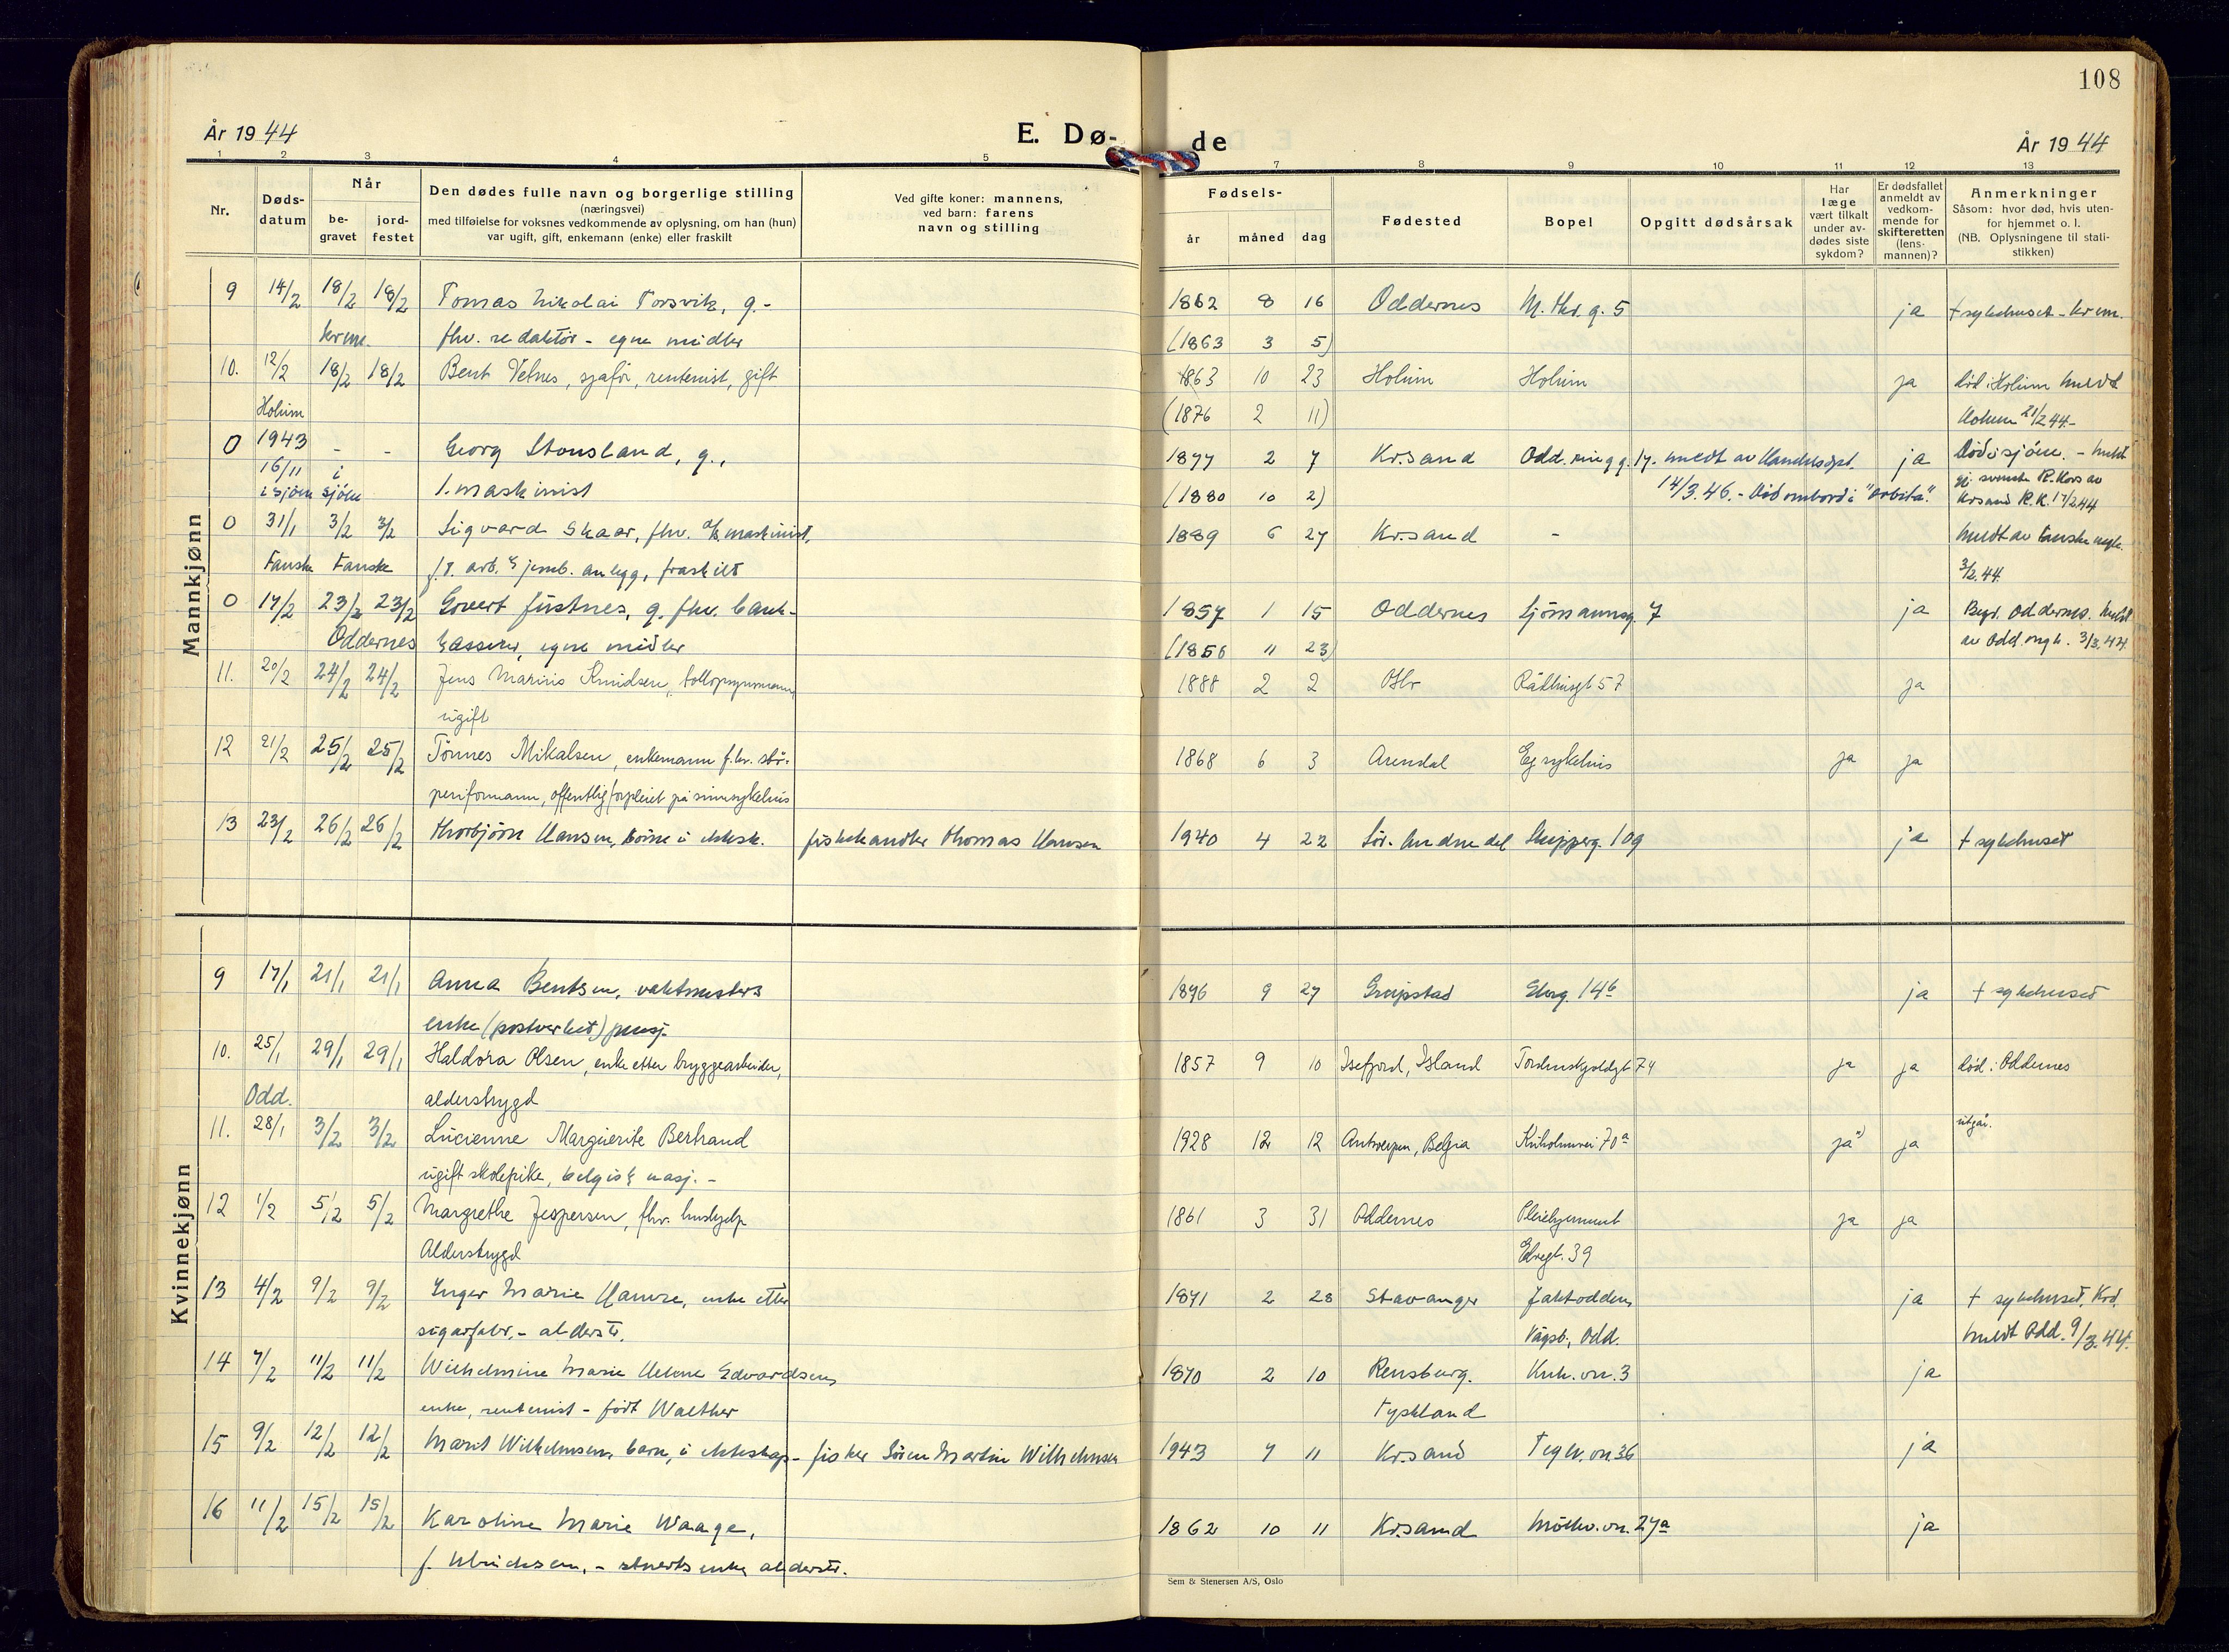 108
År 1944
E. Dø-
de
År 1944
1 2 3 4 5 7 8 9 10 11 12 13
Nr.
Døds-
datum
Når
be-
gravet
jord-
festet
Den dødes fulle navn og borgerlige stilling
(næringsvei)
med tilføielse for voksnes vedkommende av oplysning, om han (hun)
var ugift, gift, enkemann (enke) eller fraskilt
Ved gifte koner: mannens,
ved barn: farens
navn og stilling
Fødsels-
år måned dag
Fødested
Bopel
Opgitt dødsårsak
Har
læge
vært tilkalt
under av-
dødes siste
sykdom?
Er dødsfallet
anmeldt av
vedkom-
mende for
skifteretten
(lens-
mannen)?
Anmerkninger
Såsom: hvor død, hvis uten-
for hjemmet o. l.
(NB. Oplysningene til stati-
stikken)
Mannkjønn
9 14/2 18/2 18/2 Tomas Nikolai Torsvik, g.- 1862 8 16 Oddernes M. Thr. g. 5 ja † sykehuset - krem.
krem. fhv. redaktør - egne midler (1863 3 5)
10. 12/2 18/2 18/2 Bent Vetnes, sjafør, rentenist, gift 1863 10 23 Holum Holum ja død i Holum meldt
Holum (1876 2 11) Holum 21/2 44.-
0 1943 - - Georg Stousland, g., 1877 2 7 Kr.sand Odd. ringg. 17. meldt av Handelsdpt. ja Død i sjøen. - meldt
16/11 i gj. svenske R. Kors av
i sjøen sjøen 1. maskinist (1880 10 2) 14/3.46. - Død ombord i "Arbita". Krsand R.K. 17/2 44
0 31/1 3/2 3/2 Sigvard Skaar, fhv. maskinist, 1889 6 27 Kr.sand - meldt av Fauske
Fauske Fauske f.t. arb. jernb. anlegg, fraskilt 3/2.44.
0 17/2 23/2 23/2 Govert Justnes, g. fhv. bank- 1857 1 15 Oddernes Sjømannsg. 7 ja Begr. Oddernes. meldt
Oddernes kasserer, egne midler (1856 11 23) av Odd. 3/3.44.
11. 20/2 24/2 24/2 Jens Marius Knudsen, tollopsynsmann, 1888 2 2 Oslo Rådhusgt 57 ja
ugift
12 21/2 25/2 25/2 Tønnes Mikalsen, enkemann f.hv. stø- 1868 6 3 Arendal Eg sykehus ja ja
periformann, offentlig forpleiet på sinnsykehus
13 23/2 26/2 26/2 Thorbjørn Hansen, barn i ektesk. fiskehandler Thomas Hansen 1940 4 22 Sør-Audnedal Skipperg. 109 ja † sykehuset
Kvinnekjønn
9 17/1 21/1 21/1 Anna Bentsen, vaktmesters 1896 9 27 Greipstad Elveg. 146 ja † sykehuset
enke (postverket) pensj.
10. 25/1 29/1 29/1 Haldora Olsen, enke etter bryggearbeider, 1857 9 10 Isefjord, Island Tordenskjoldgt 74 ja ja død i Oddernes
Odd. alderstrygd
11. 28/1 3/2 3/2 Lucienne Marguerite Bertrand 1928 12 12 Antwerpen, Belgia Kuholmsvei 70a ja ja utgår.
ugift skolepike, belgisk nasj. -
12 1/2 5/2 5/2 Margrethe Jespersen, fhv. hushjelp 1861 3 31 Oddernes Pleiehjemmet ja ja
Alderstrygd Elvegt. 39
13 4/2 9/2 9/2 Inger Marie Hamre, enke etter 1871 2 28 Stavanger Jaktodden, ja † sykehuset, Krd.
sigarfabr. - alderstr. Vågsb., Odd. meldt Odd. 9/3.44.
14 7/2 11/2 11/2 Wilhelmine Marie Helene Edvardsen, 1870 2 10 Rensburg. Kuh. vn. 3 ja
enke, rentenist - født Walther Tyskland
15 9/2 12/2 12/2 Marit Wilhelmsen, barn, i ekteskap - fisker Søren Martin Wilhelmsen 1943 7 11 Kr.sand Teglv. vn. 36 ja
16 11/2 15/2 15/2 Karoline Marie Waage, 1862 10 11 Kr.sand Møllev. vn. 27a ja
f. Ulrichsen, - stuerts enke alderstr.
Sem & Stenersen A/S, Oslo